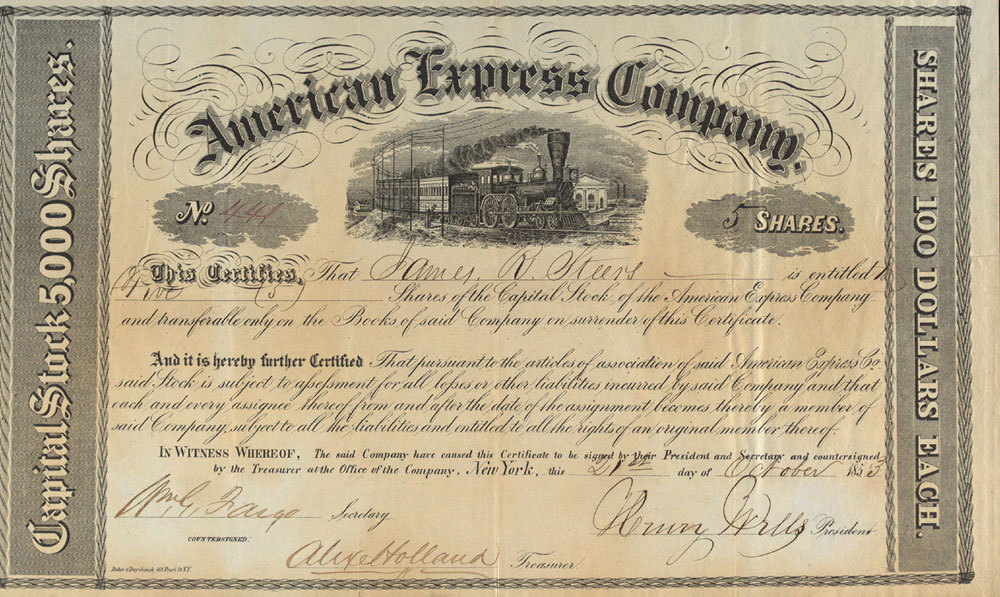 American Express Company.
Capital Stock 5,000 Shares.
SHARES 100 DOLLARS EACH.
No. 441
5 SHARES.
This Certifies, That James R. Steers is entitled to
Five (5) Shares of the Capital Stock of the American Express Company
and transferable only on the Books of said Company on surrender of this Certificate.
And it is hereby further Certified That pursuant to the articles of association of said American Express Co.
said Stock is subject to assessment for all losses or other liabilities incurred by said Company and that
each and every assignee thereof from and after the date of the assignment becomes thereby a member of
said Company, subject to all the liabilities and entitled to all the rights of an original member thereof.
IN WITNESS WHEREOF, The said Company have caused this Certificate to be signed by their President and Secretary and countersigned
by the Treasurer at the Office of the Company, NEW YORK, this 21st day of October 1853
Wm G. Fargo Secretary
Henry Wells President
COUNTERSIGNED.
Alex Holland Treasurer.